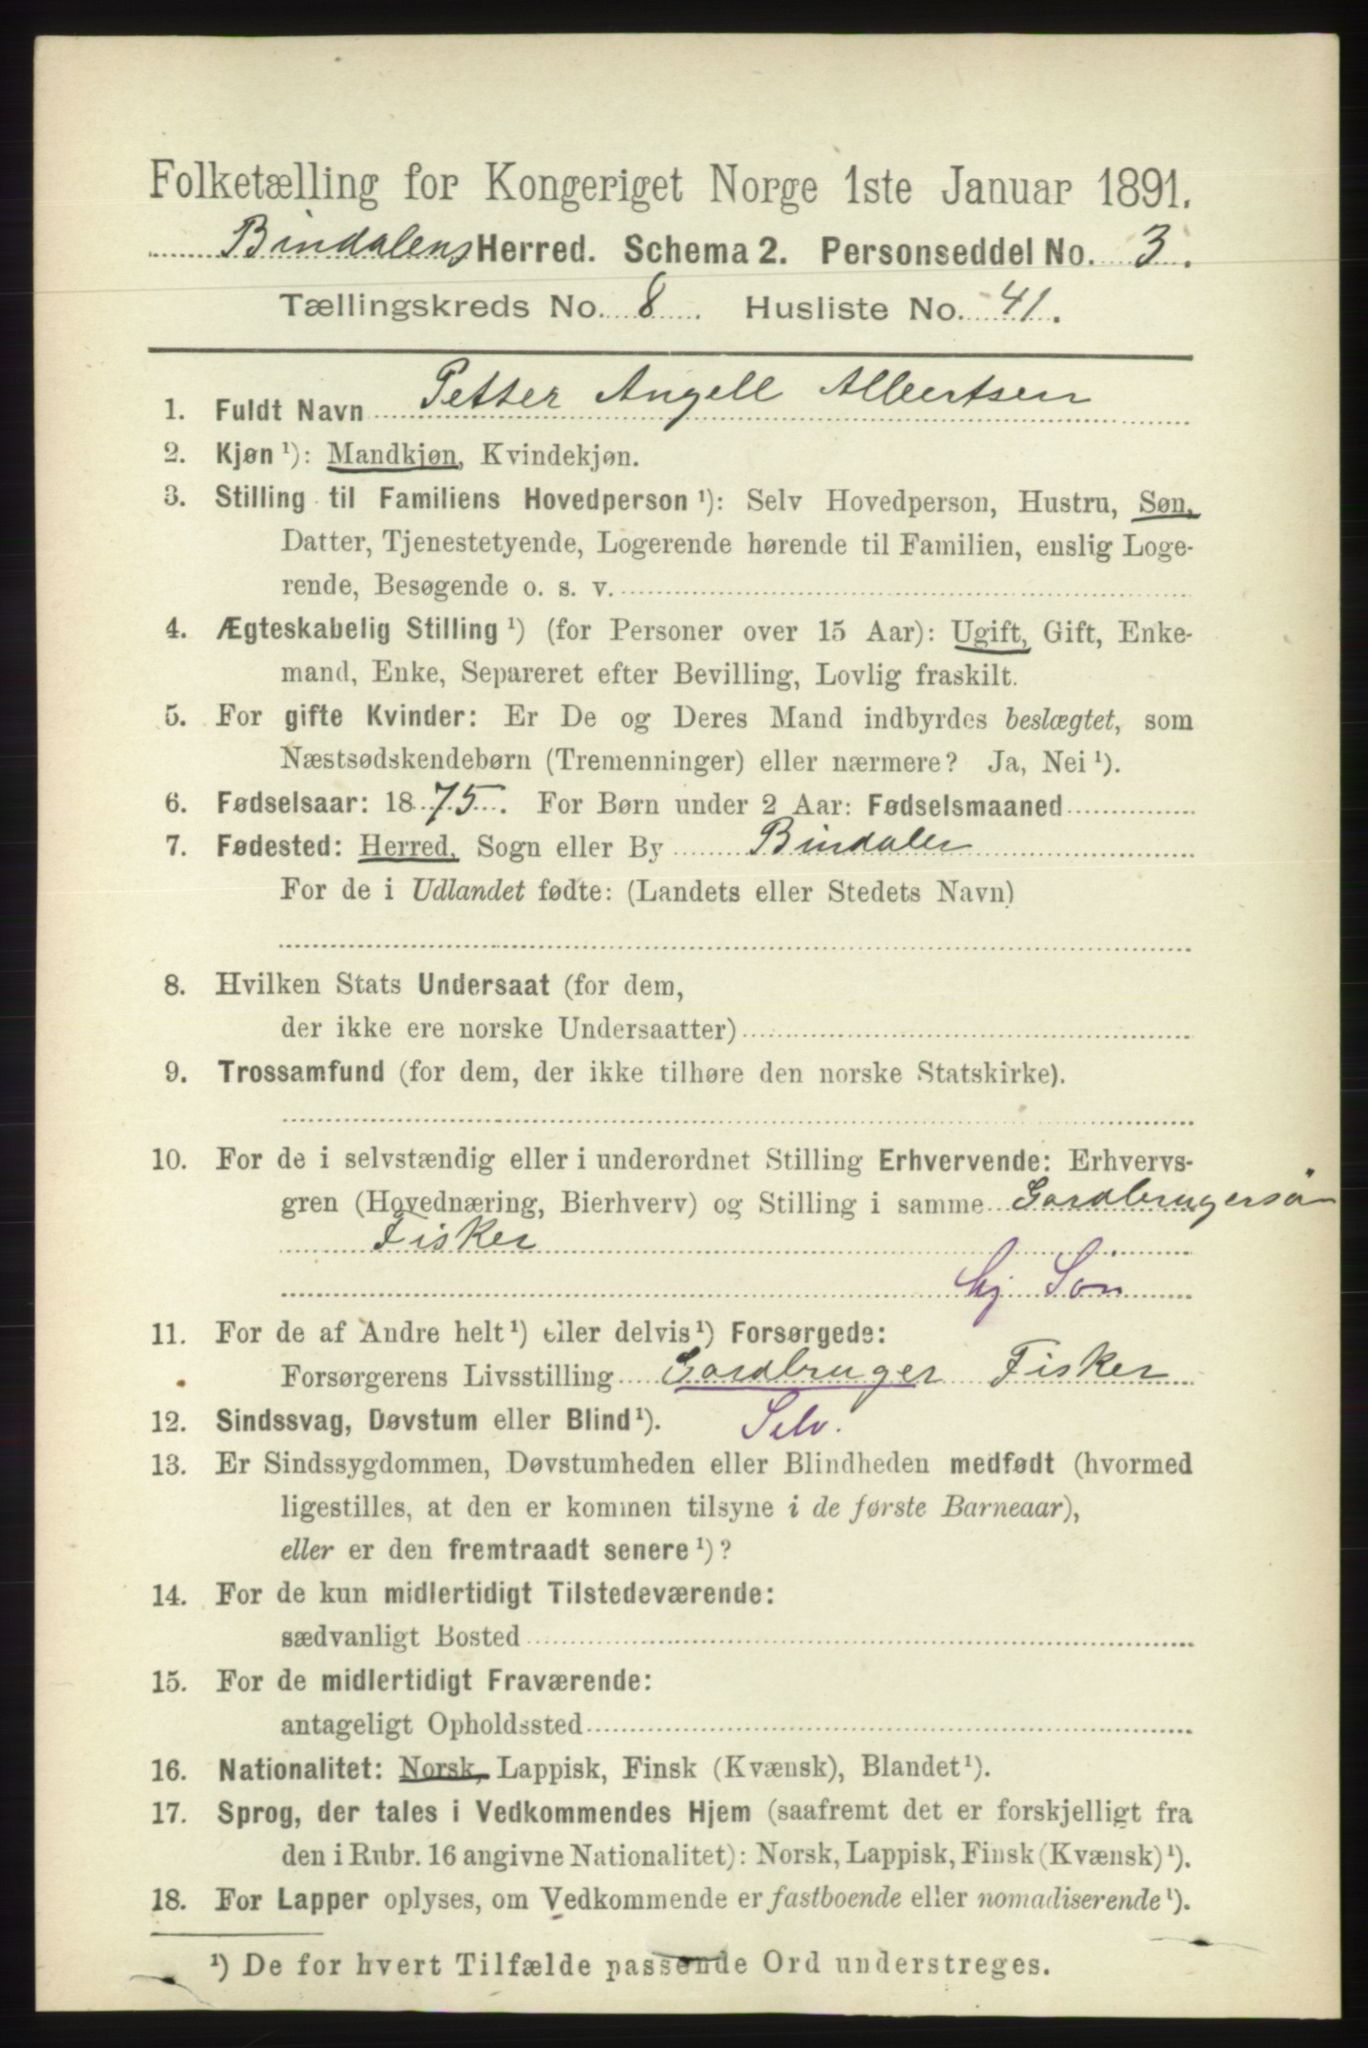 Folketælling for Kongeriget Norge 1ste Januar 1891.
Bindalens Herred. Schema 2. Personseddel No. 3.
Tællingskreds No. 8. Husliste No. 41.
1. Fuldt Navn Petter Angell Albertsen
2. Kjøn ¹): Mandkjøn, Kvindekjøn.
3. Stilling til Familiens Hovedperson ¹): Selv Hovedperson, Hustru, Søn,
Datter, Tjenestetyende, Logerende hørende til Familien, enslig Loge-
rende, Besøgende o. s. v.
4. Ægteskabelig Stilling ¹) (for Personer over 15 Aar): Ugift, Gift, Enke-
mand, Enke, Separeret efter Bevilling, Lovlig fraskilt.
5. For gifte Kvinder: Er De og Deres Mand indbyrdes beslægtet, som
Næstsødskendebørn (Tremenninger) eller nærmere? Ja, Nei ¹).
6. Fødselsaar: 1875. For Børn under 2 Aar: Fødselsmaaned
7. Fødested: Herred, Sogn eller By Bindalen
For de i Udlandet fødte: (Landets eller Stedets Navn)
8. Hvilken Stats Undersaat (for dem,
der ikke ere norske Undersaatter)
9. Trossamfund (for dem, der ikke tilhøre den norske Statskirke).
10. For de i selvstændig eller i underordnet Stilling Erhvervende: Erhvervs-
gren (Hovednæring, Bierhverv) og Stilling i samme Gardbrugersøn
Fisker
hj Søn
11. For de af Andre helt ¹) eller delvis ¹) Forsørgede:
Forsørgerens Livsstilling Gardbruger Fisker
12. Sindssvag, Døvstum eller Blind ¹). Selv.
13. Er Sindssygdommen, Døvstumheden eller Blindheden medfødt (hvormed
ligestilles, at den er kommen tilsyne i de første Barneaar),
eller er den fremtraadt senere ¹)?
14. For de kun midlertidigt Tilstedeværende:
sædvanligt Bosted
15. For de midlertidigt Fraværende:
antageligt Opholdssted
16. Nationalitet: Norsk, Lappisk, Finsk (Kvænsk), Blandet ¹).
17. Sprog, der tales i Vedkommendes Hjem (saafremt det er forskjelligt fra
den i Rubr. 16 angivne Nationalitet): Norsk, Lappisk, Finsk (Kvænsk) ¹).
18. For Lapper oplyses, om Vedkommende er fastboende eller nomadiserende ¹).
¹) De for hvert Tilfælde passende Ord understreges.